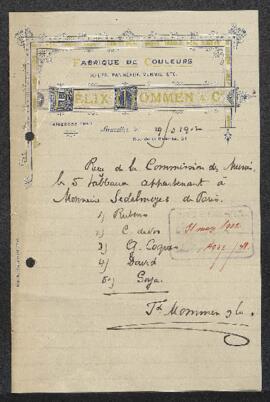 FABRIQUE DE COULEURS
TOILES, PANNEAUX, VERNIS, ETC.
FÉLIX MOMMEN & Cº
Bruxelles
1902
Reçu de la Commission du Musée
les 5 tableaux appartenant à
Monsieur Sedelmeyer de Paris.
1) Rubens
2) C. de Vos
3) G. Coques
4) David
5) Goya
31 mars 1902
Fx Mommen & Co